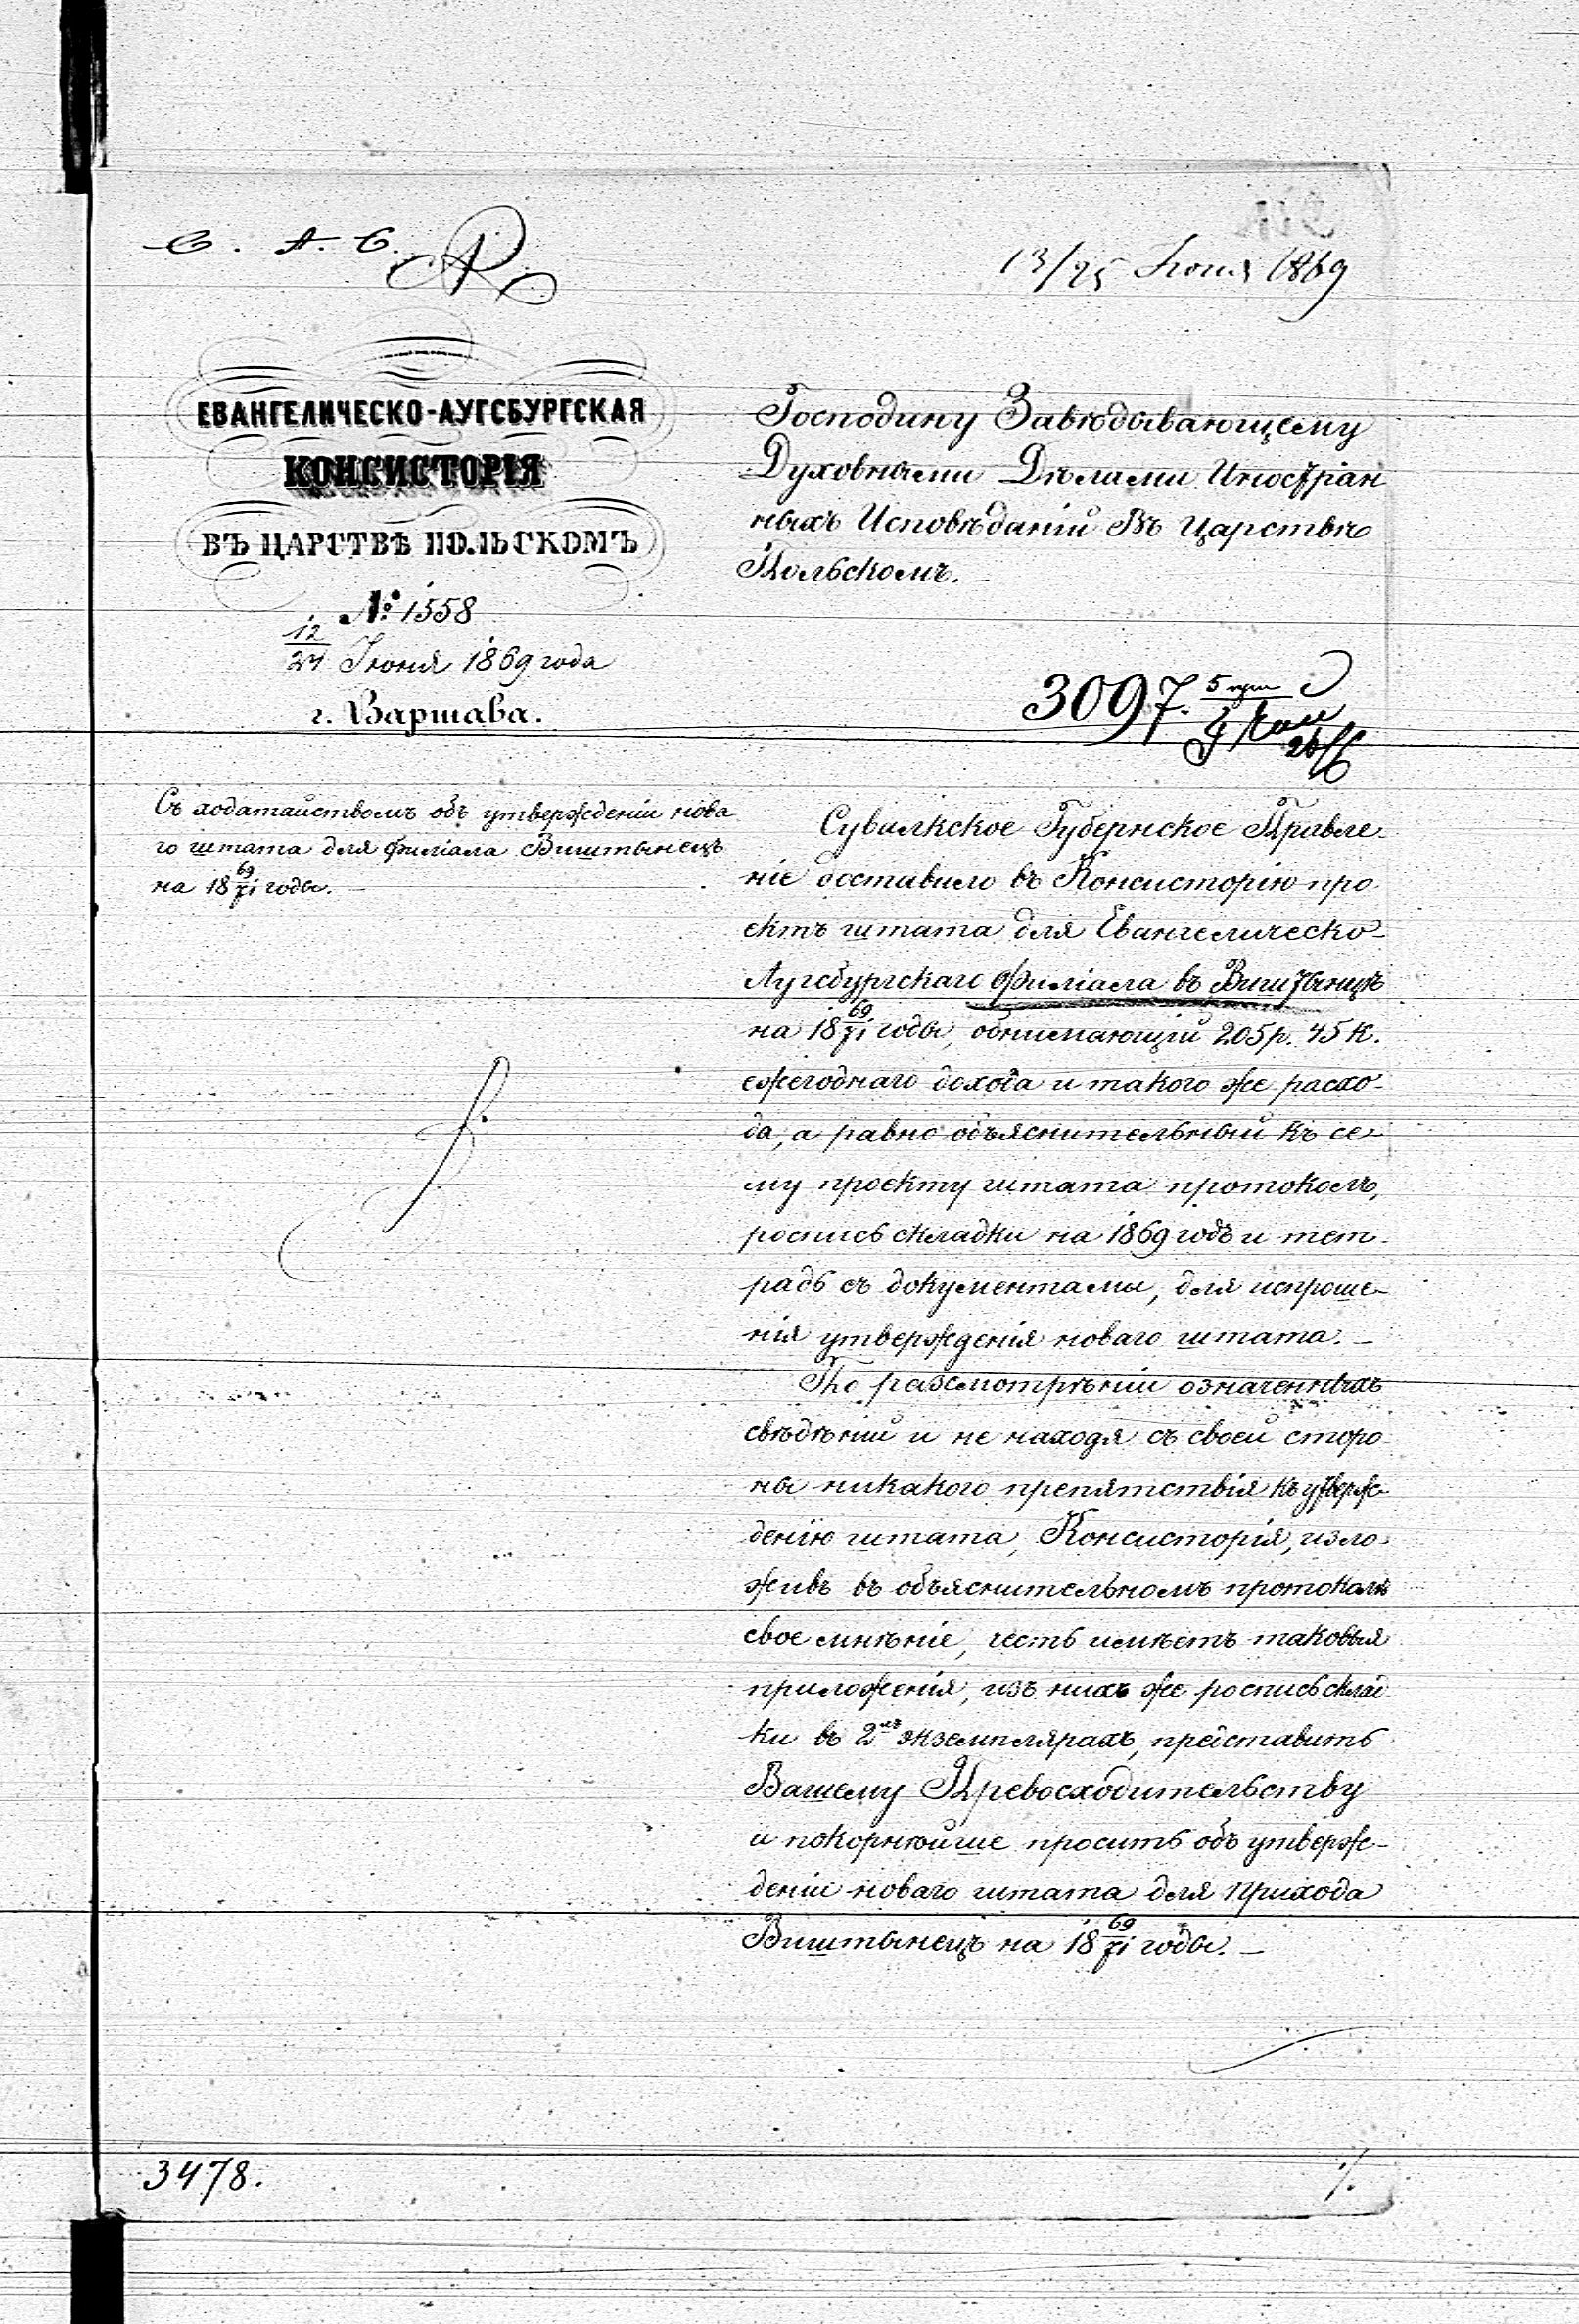 С. А. С.
13/25 Іюня 1869
ЕВАНГЕЛИЧЕСКО-АУГСБУРГСКАЯ
КОНСИСТОРІЯ
ВЪ ЦАРСТВѢ ПОЛЬСКОМЪ
№ 1558
12/24 Іюня 1869 года
г. Варшава.
Господину Завѣдывающему
Духовными Дѣлами Иностран
ныхъ Исповѣданій Въ Царствѣ
Польскомъ. —
3097.
Съ ходатайствомъ объ утвержденіи нова
го штата для филіала Виштынецъ
на 18 69/71 годы. —
Сувалкское Губернское Правле
ніе доставило въ Консисторію про
ектъ штата для Евангелическо-
Аугсбургскаго Филіала въ Виштынцѣ
на 18 69/71 годы, обнимающій 205 р. 45 к.
ежегоднаго дохода и такого же расхо-
да, а равно объяснительный къ се
му проекту штата протоколъ,
роспись складки на 1869 годъ и тет-
радь съ документами, для испроше-
нія утвержденія новаго штата. —
По разсмотрѣніи означенныхъ
свѣдѣній и не находя съ своей сторо
ны никакого препятствія къ утверж-
денію штата, Консисторія, изло-
живъ въ объяснительномъ протоколѣ
свое мнѣніе, честь имѣетъ таковыя
приложенія, изъ нихъ же роспись склад
ки въ 2хъ экземплярахъ, представить
Вашему Превосходительству
и покорнѣйше просить объ утверж-
деніи новаго штата для прихода
Виштынецъ на 18 69/71 годы. —
3478.